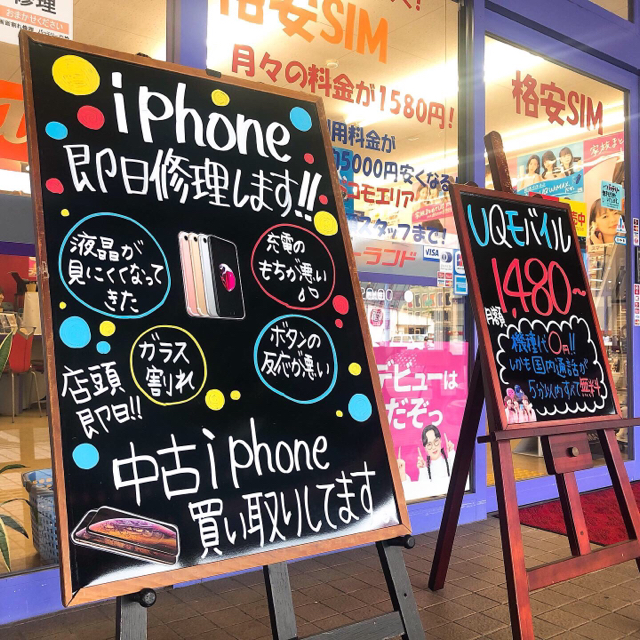 iphone
即日修理します!!
液晶が
見にくくなって
きた
充電の
もちが悪い
ガラス
割れ
ボタンの
反応が悪い
店頭
即日!!
中古iphone
買い取りしてます
UQモバイル
月額
1,480~
機種代〇円!!
しかも国内通話が
5分以内すべて無料
修理
おまかせください
格安SIM
月々の料金が1580円!
用料金が
5000円安くなる
コモエリア
スタッフまで!
ーランド
VISA
格安SIM
デビューは
だぞっ